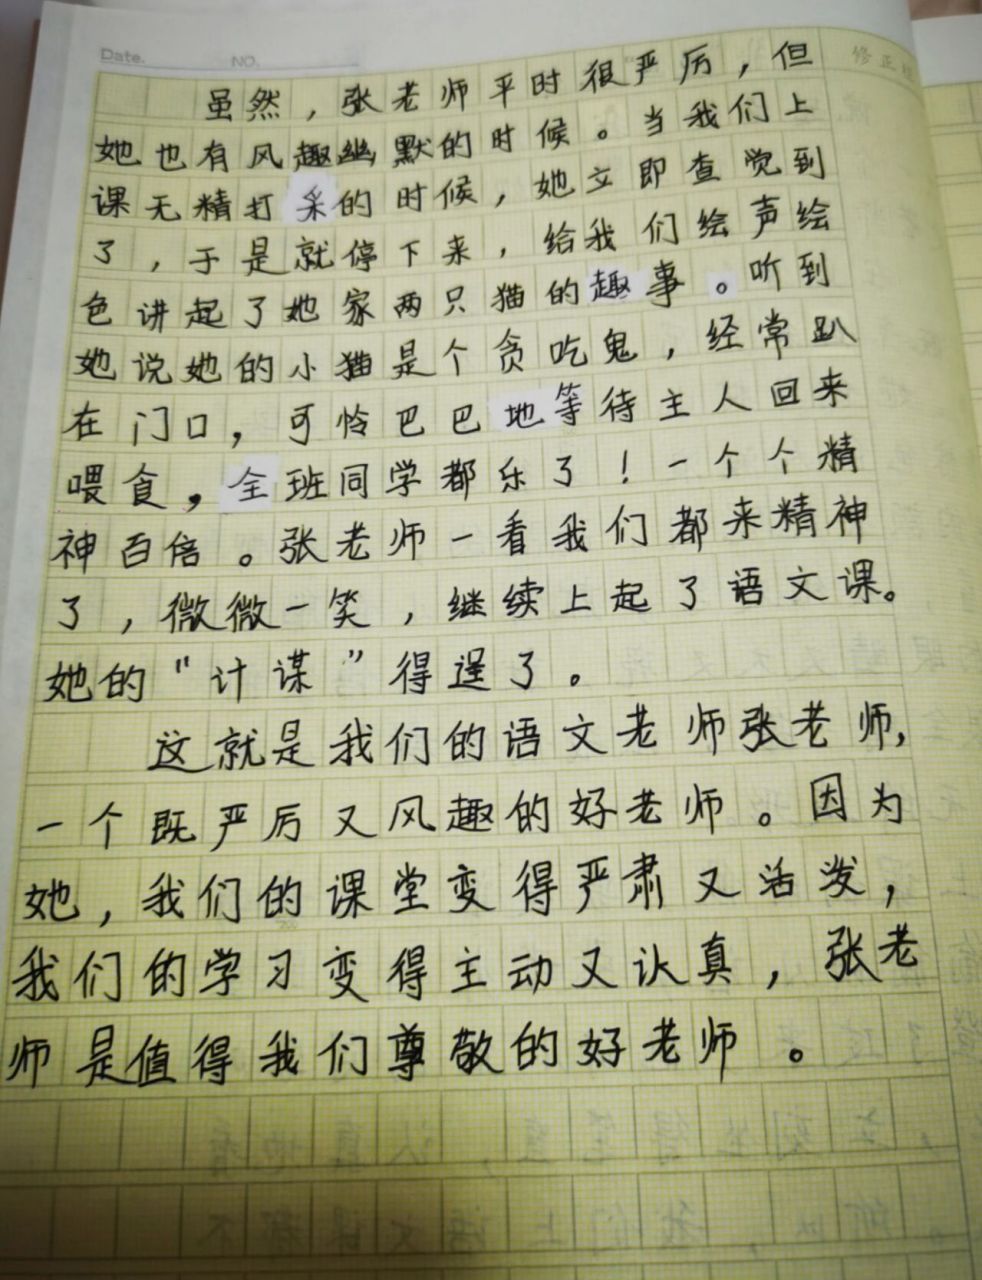 Date.
NO.
修正
虽然，张老师平时很严厉，但
她也有风趣幽默的时候。当我们上
课无精打采的时候，她立即查觉到
了，于是就停下来，给我们绘声绘
色讲起了她家两只猫的趣事。听到
她说她的小猫是个贪吃鬼，经常趴
在门口，可怜巴巴地等待主人回来
喂食，全班同学都乐了！一个个精
神百倍。张老师一看我们都来精神
了，微微一笑，继续上起了语文课。
她的“计谋”得逞了。
这就是我们的语文老师张老师，
一个既严厉又风趣的好老师。因为
她，我们的课堂变得严肃又活泼，
我们的学习变得主动又认真，张老
师是值得我们尊敬的好老师。